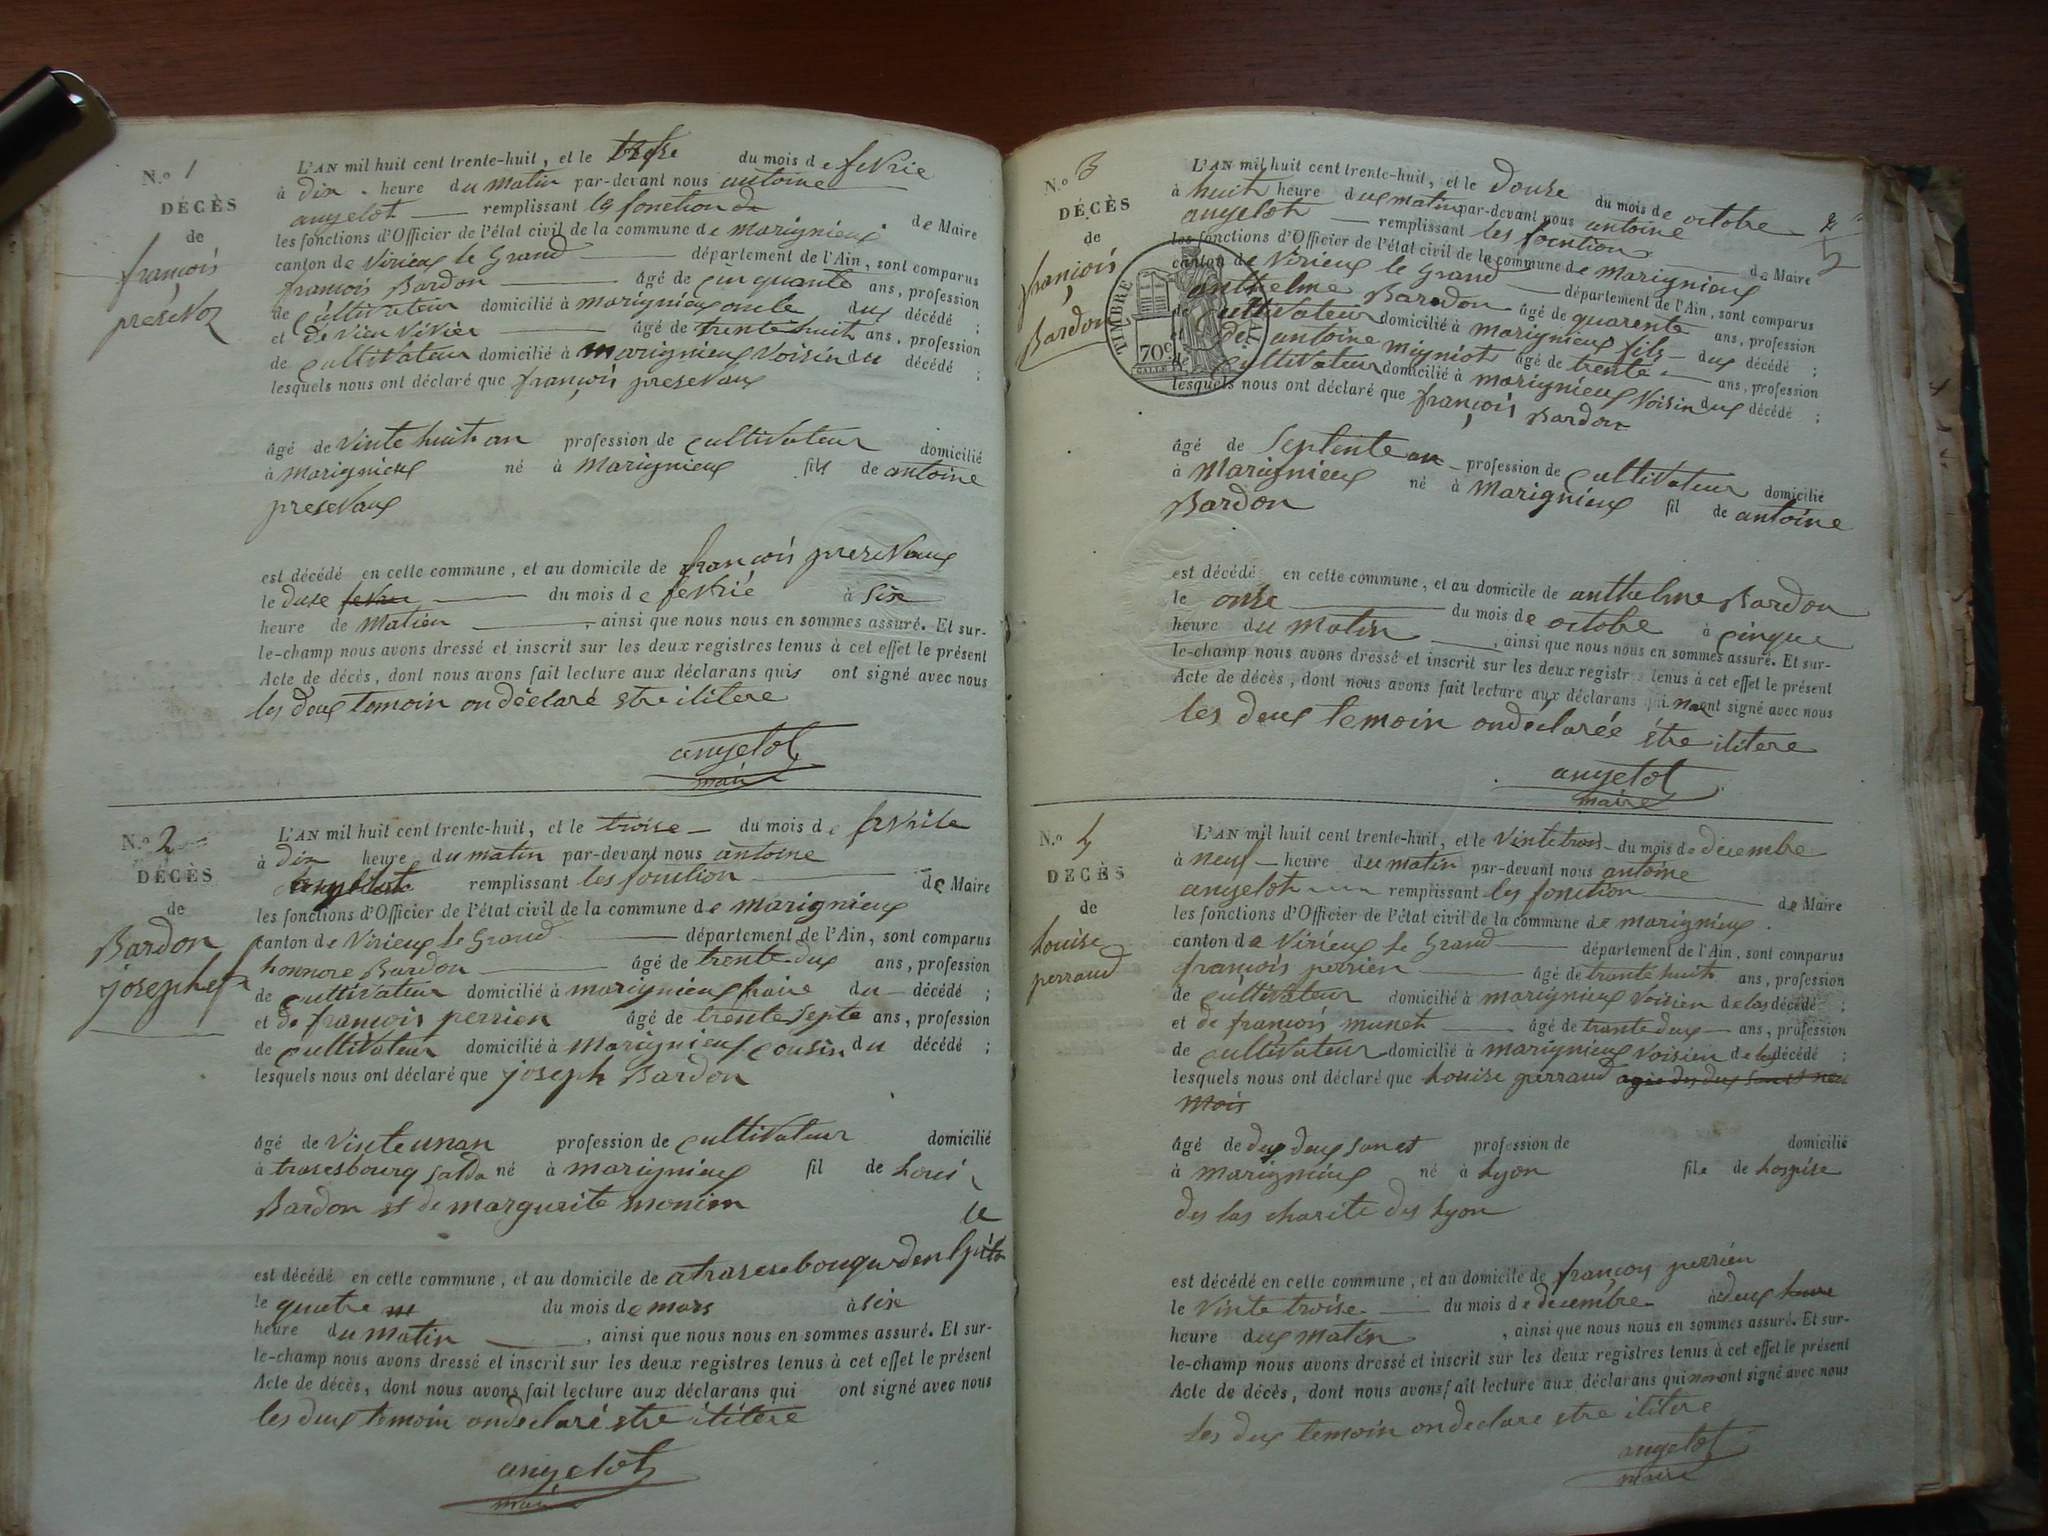 N.o 1
DÉCÈS
de
françois
presevoz
L'AN mil huit cent trente-huit, et le du mois de fevrie
à dix heure du matin par-devant nous antoine
angelot remplissant les fonction de de Maire
les fonctions d'Officier de l'état civil de la commune de marignieux
canton de virieux le Grand département de l'Ain, sont comparus
françois Bardon âgé de cinquante ans, profession
de cultivateur domicilié à marignieux oncle dux décédé ;
et de vivier âgé de trente huit ans, profession
de cultivateur domicilié à marignieux voisin du décédé ;
lesquels nous ont déclaré que françois presevaux
âgé de vinte huit an profession de cultivateur domicilié
à marignieux né à marignieux fils de antoine
presevaux
est décédé en cette commune, et au domicile de françois presevaux
le duse du mois de fevrié à sixe
heure de matien , ainsi que nous nous en sommes assuré. Et sur-
le-champ nous avons dressé et inscrit sur les deux registres tenus à cet effet le présent
Acte de décès, dont nous avons fait lecture aux déclarans quis ont signé avec nous
les deux temoin on déclaré stre ilitere
angelot
maire
N.o 2
DÉCÈS
de
Bardon
josephe
L'AN mil huit cent trente-huit, et le troise du mois de
à dix heure du matin par-devant nous antoine
angelot remplissant les fonction de Maire
les fonctions d'Officier de l'état civil de la commune de marignieux
canton de Virieux le Grand département de l'Ain, sont comparus
honnore Bardon âgé de trente dux ans, profession
de cultivateur domicilié à marignieux fraire du décédé ;
et de françois perrien âgé de trente septe ans, profession
de cultivateur domicilié à marignieux cousin du décédé ;
lesquels nous ont déclaré que joseph Bardon
âgé de vinte unan profession de cultivateur domicilié
à trasesbourg solda né à marignieux fil de Loui
Bardon et de marguerite monien
le
est décédé en cette commune, et au domicile de
le quatre du mois de mars à sixe
heure du matin , ainsi que nous nous en sommes assuré. Et sur-
le-champ nous avons dressé et inscrit sur les deux registres tenus à cet effet le présent
Acte de décès, dont nous avons fait lecture aux déclarans qui ont signé avec nous
les dux temoin ondeclaré stre ilitere
angelot
maire
N.o 3
DÉCÈS
de
françois
Bardon
TIMBRE
70c
L'AN mil huit cent trente-huit, et le douse du mois de octobre
à huit heure dux matin par-devant nous antoine
angelot remplissant les fonction de Maire
les fonctions d'Officier de l'état civil de la commune de marignieux
canton de Virieux le Grand département de l'Ain, sont comparus
anthelme Bardon âgé de quarente ans, profession
de cultivateur domicilié à marignieux fils dux décédé ;
et de antoine migniot âgé de trente ans, profession
de cultivateur domicilié à marignieux voisin dux décédé ;
lesquels nous ont déclaré que françois Bardon
âgé de septente an profession de cultivateur domicilié
à Marignieux né à Marignieux fil de antoine
Bardon
est décédé en cette commune, et au domicile de anthelme Bardon
le onse du mois de octobre à cinque
heure du matin , ainsi que nous nous en sommes assuré. Et sur-
le-champ nous avons dressé et inscrit sur les deux registres tenus à cet effet le présent
Acte de décès, dont nous avons fait lecture aux déclarans qui non ont signé avec nous
les deux temoin ondeclarée être ilitere
angelot
maire
N.o 4
DÉCÈS
de
Louise
perraud
L'AN mil huit cent trente-huit, et le vinte trois du mois de decembre
à neuf heure du matin par-devant nous antoine
angelot remplissant les fonction de Maire
les fonctions d'Officier de l'état civil de la commune de marignieux
canton de Virieux le Grand département de l'Ain, sont comparus
françois perrien âgé de trante huit ans, profession
de cultivateur domicilié à marignieux voisien de las décédé ;
et de françois munet âgé de trante dux ans, profession
de cultivateur domicilié à marignieux voisien de las décédé ;
lesquels nous ont déclaré que Louise perraud
mois
âgé de profession de domicilié
à marignieux né à Lyon file de hospise
des las charite des Lyon
est décédé en cette commune, et au domicile de françoy perrien
le vinte troise du mois de decembre à deux heure
heure dux matin , ainsi que nous nous en sommes assuré. Et sur-
le-champ nous avons dressé et inscrit sur les deux registres tenus à cet effet le présent
Acte de décès, dont nous avons fait lecture aux déclarans qui non ont signé avec nous
les dux temoin ondeclare stre ilitere
angelot
maire